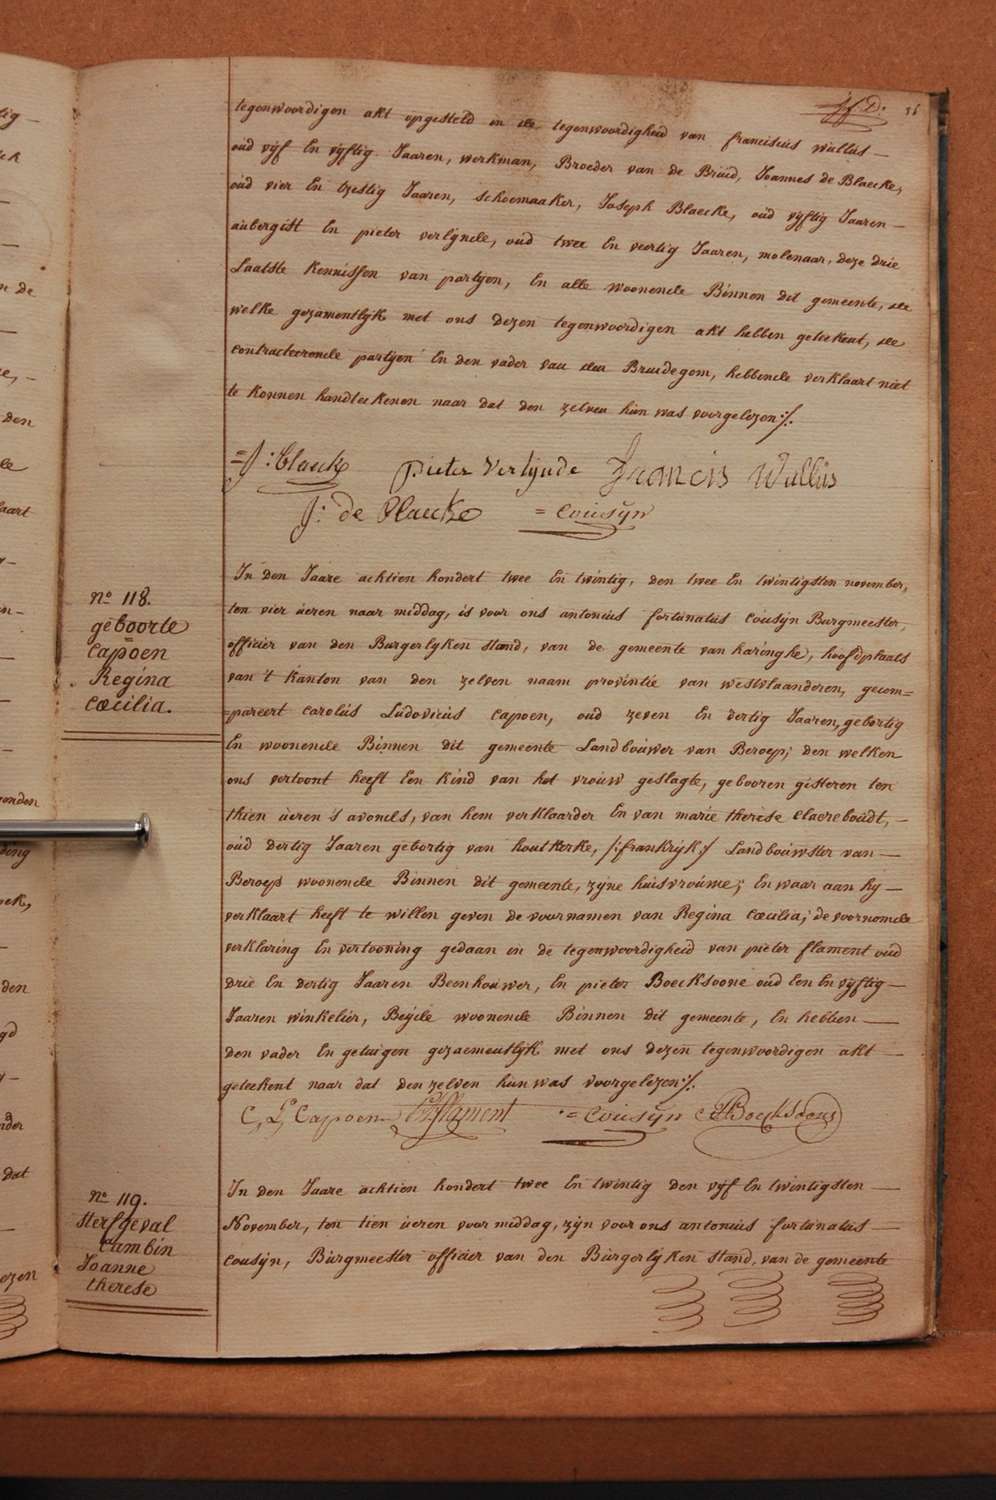 36
tegenwoordigen akt opgesteld in de tegenwoordigheid van franciscus wallus —
oúd vÿf En vÿftig Jaaren, werkman, Broeder van de Brúid, Joannes de Blaecke,
oúd vier En tzestig Jaaren, schoemaaker, Joseph Blaecke, oúd vÿftig Jaaren —
aúbergist En pieter verlÿnde, oúd twee En veertig Jaaren, molenaar, deze drie
Laatste Kennissen van partÿen, En alle woonende Binnen dit gemeente, de
welke gezamentlÿk met ons dezen tegenwoordigen akt hebben geteekent, de
contracteerende partÿen En den vader van den Bruidegom, hebbende verklaart niet
te konnen handteekenen naar dat den zelven hún was voorgelezen :/.
= J: Blaecke pieter verlÿnde Francis Wallús
J: de Blaecke = coúsÿn
nº 118.
geboorte
=
Capoen
Regina
cæcilia.
In den Jaare achtien hondert twee En twintig, den twee En twintigsten november,
ten vier úeren naar middag, is voor ons antonius fortunatus coúsÿn Búrgmeester,
officier van den Burgerlÿken stand, van de gemeente van haringhe, hoofdplaats
van 't kanton van den zelven naam provintie van westvlaanderen, gecom=
=pareert carolús Lúdovicús capoen, oúd zeven En dertig Jaaren, gebortig
En woonende Binnen dit gemeente Landboúwer van Beroep; den welken
ons vertoont heeft Een kind van het vroúw geslagte, gebooren gisteren ten
thien úeren 's avonds, van hem verklaarder En van marie therese claereboúdt, —
oúd dertig Jaaren gebortig van houtkerke, /:frankrÿk:/ Landboúwster van —
Beroep woonende Binnen dit gemeente, zÿne húisvroúwe; En waar aan hÿ —
verklaart heeft te willen geven de voornamen van Regina cæcilia; de voornomde
verklaring En vertooning gedaan in de tegenwoordigheid van pieter flament oúd
drie En dertig Jaaren Beenhouwer, En pieter Boecksoone oúd Een En vÿftig —
Jaaren winkelier, Beÿde woonende Binnen dit gemeente, En hebben —
den vader En getuigen gezaementlÿk met ons dezen tegenwoordigen akt —
geteekent naar dat den zelven hún was voorgelezen :/.
C, L, Capoen flament = coúsÿn Boecksoone
nº 119.
sterfgeval
Cambin
Joanne
therese
In den Jaare achtien hondert twee En twintig den vÿf En twintigsten —
November, ten tien úeren voor middag, zÿn voor ons antonius fortunatus —
coúsÿn, Búrgmeester officier van den Búrgerlÿken stand, van de gemeente